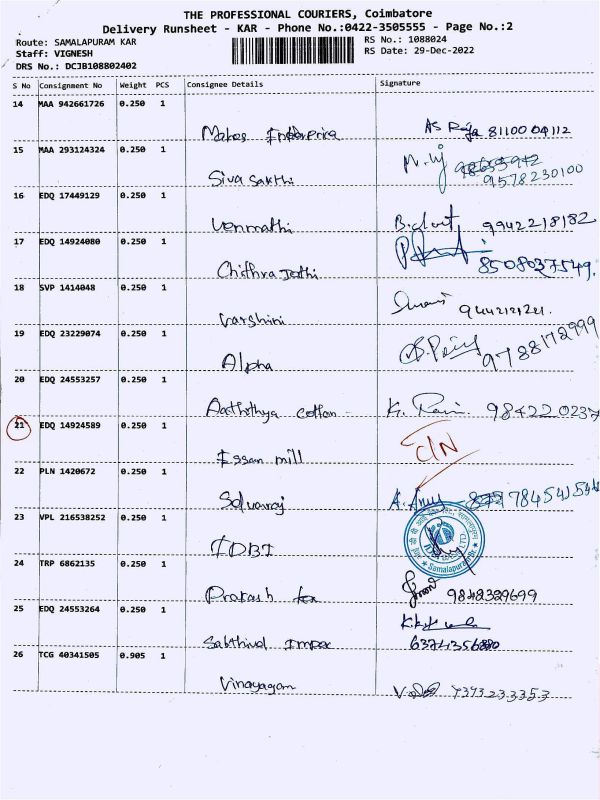 THE PROFESSIONAL COURIERS, Coimbatore
Delivery Runsheet - KAR - Phone No.:0422-3505555 - Page No.:2
Route: SAMALAPURAM KAR
RS No.: 1088024
Staff: VIGNESH
RS Date: 29-Dec-2022
DRS No.: DCJB108802402
S No Consignment No Weight PCS Consignee Details Signature
14 MAA 942661726 0.250 1
8110004112
15 MAA 293124324 0.250 1
Siva Sakthi 9578230100
16 EDQ 17449129 0.250 1
Venmathi 9942218182
17 EDQ 14924080 0.250 1
Chithra Jothi 8508037549.
18 SVP 1414048 0.250 1
Varshini
19 EDQ 23229074 0.250 1
Alpha 9788172999
20 EDQ 24553257 0.250 1
Cotton 984220237
21 EDQ 14924589 0.250 1
C/N
Essan mill
22 PLN 1420672 0.250 1
Selvaraj
23 VPL 216538252 0.250 1
IDBI
Samalapuram Br.
24 TRP 6862135 0.250 1
Prakash tex
25 EDQ 24553264 0.250 1
Sakthivel Impex
26 TCG 40341505 0.905 1
Vinayagam 9393233353